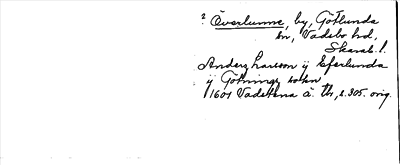 ? Överlunne, by, Götlunda
sn, Vadsbo hd,
Skarab. l.
Anders Larsson ij Eferlunda
ij Götninge sokn
1601 Vadstena ä. Th, s. 305. orig.